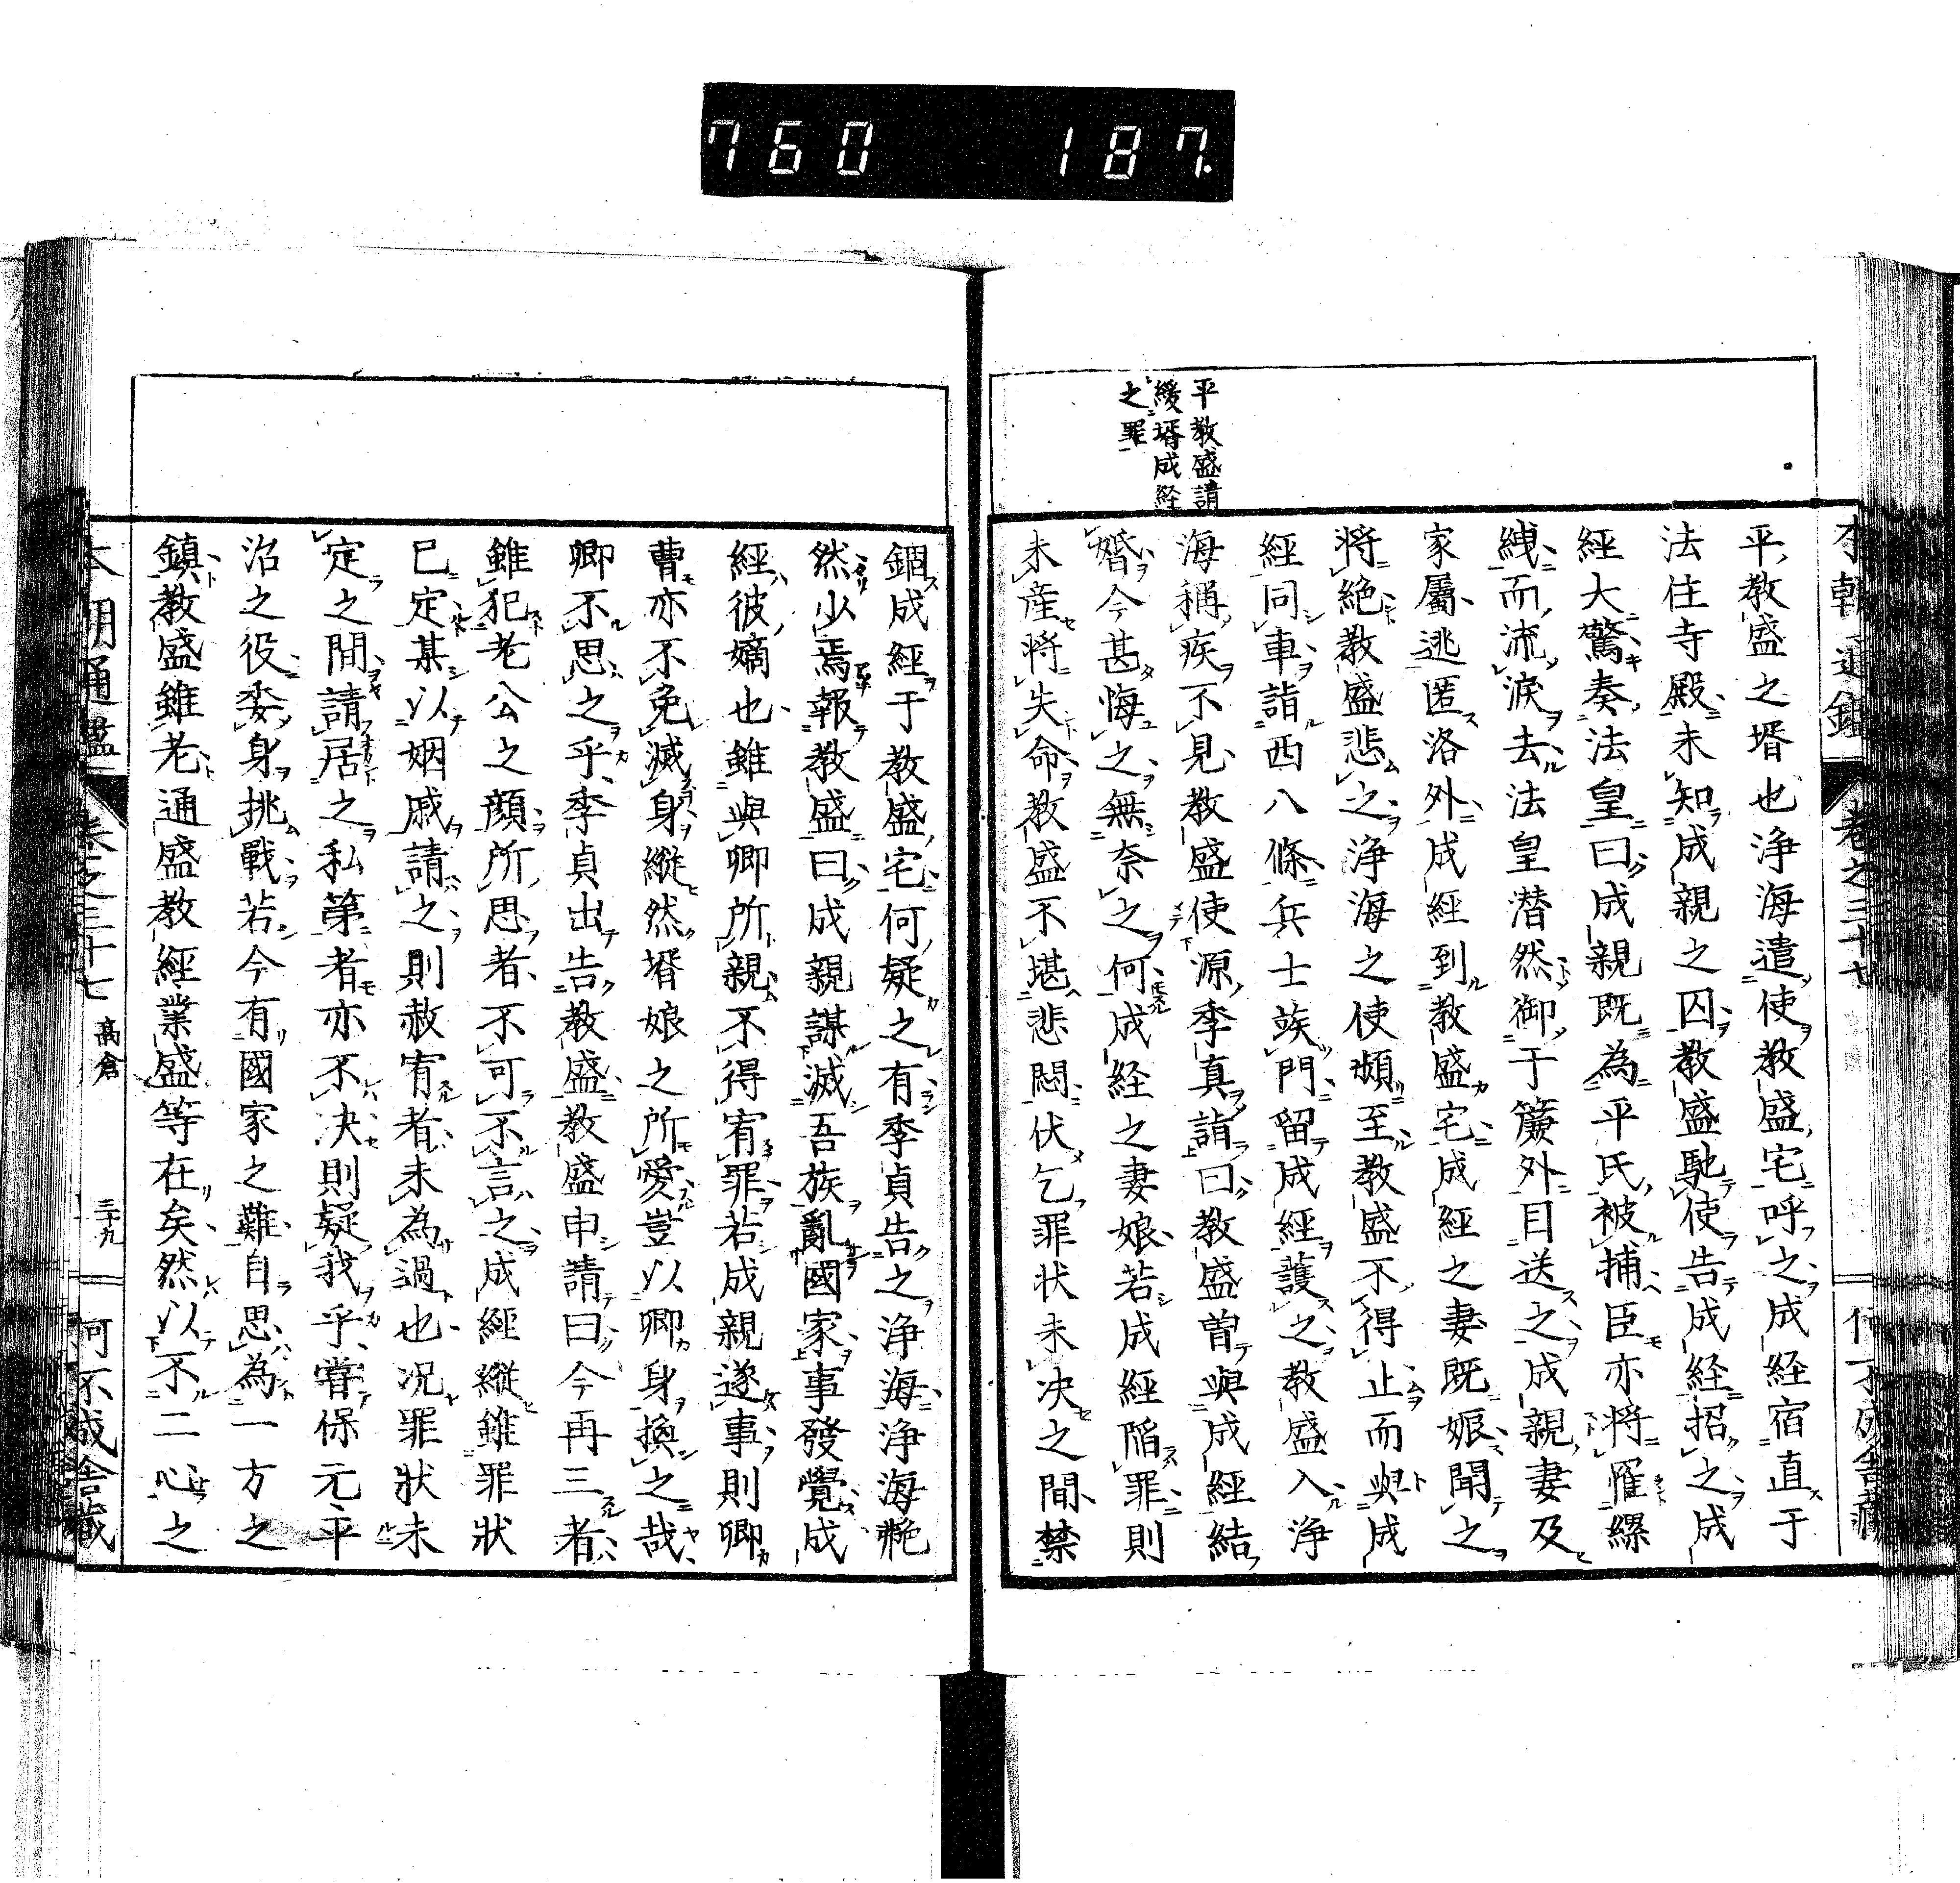 760 187
平教盛請
緩壻成経
之罪
本朝通鑑 卷之三十七
平教盛之壻也浄海遣使教盛宅呼之成経宿直于
法住寺殿未知成親之囚教盛馳使告成経招之成
經大驚奏法皇曰成親既為平氏被捕臣亦將罹縲
絏而流淚去法皇潜然御于簾外目送之成親妻及
家屬逃匿洛外成經到教盛宅成經之妻既娠聞之
將絶教盛悲之浄海之使頻至教盛不得止而與成
經同車詣西八條兵士族門留成經護之教盛入浄
海稱疾不見教盛使源季真詣曰教盛曽與成經結
婚今甚悔之無奈之何成経之妻娘若成經陥罪則
未産將失命教盛不堪悲悶伏乞罪状未决之間禁
錮成經于教盛宅何疑之有季貞告之浄海浄海艴
然少焉報教盛曰成親謀滅吾族亂國家事發覺成
經彼嫡也雖與卿所親不得宥罪若成親遂事則卿
曹亦不免滅身縱然壻娘之所愛豈以卿身換之哉
卿不思之乎季貞出告教盛教盛申請曰今再三者
雖犯老公之顔所思者不可不言之成經縱雖罪狀
已定某以姻戚請之則赦宥者未為過也况罪狀未
定之間請居之私第者亦不决則疑我乎嘗保元平
治之役委身挑戰若今有國家之難自思為一方之
鎮教盛雖老通盛教經業盛等在矣然以不二心之
本朝通鑑 卷之三十七 高倉 三十九 何不成舎蔵